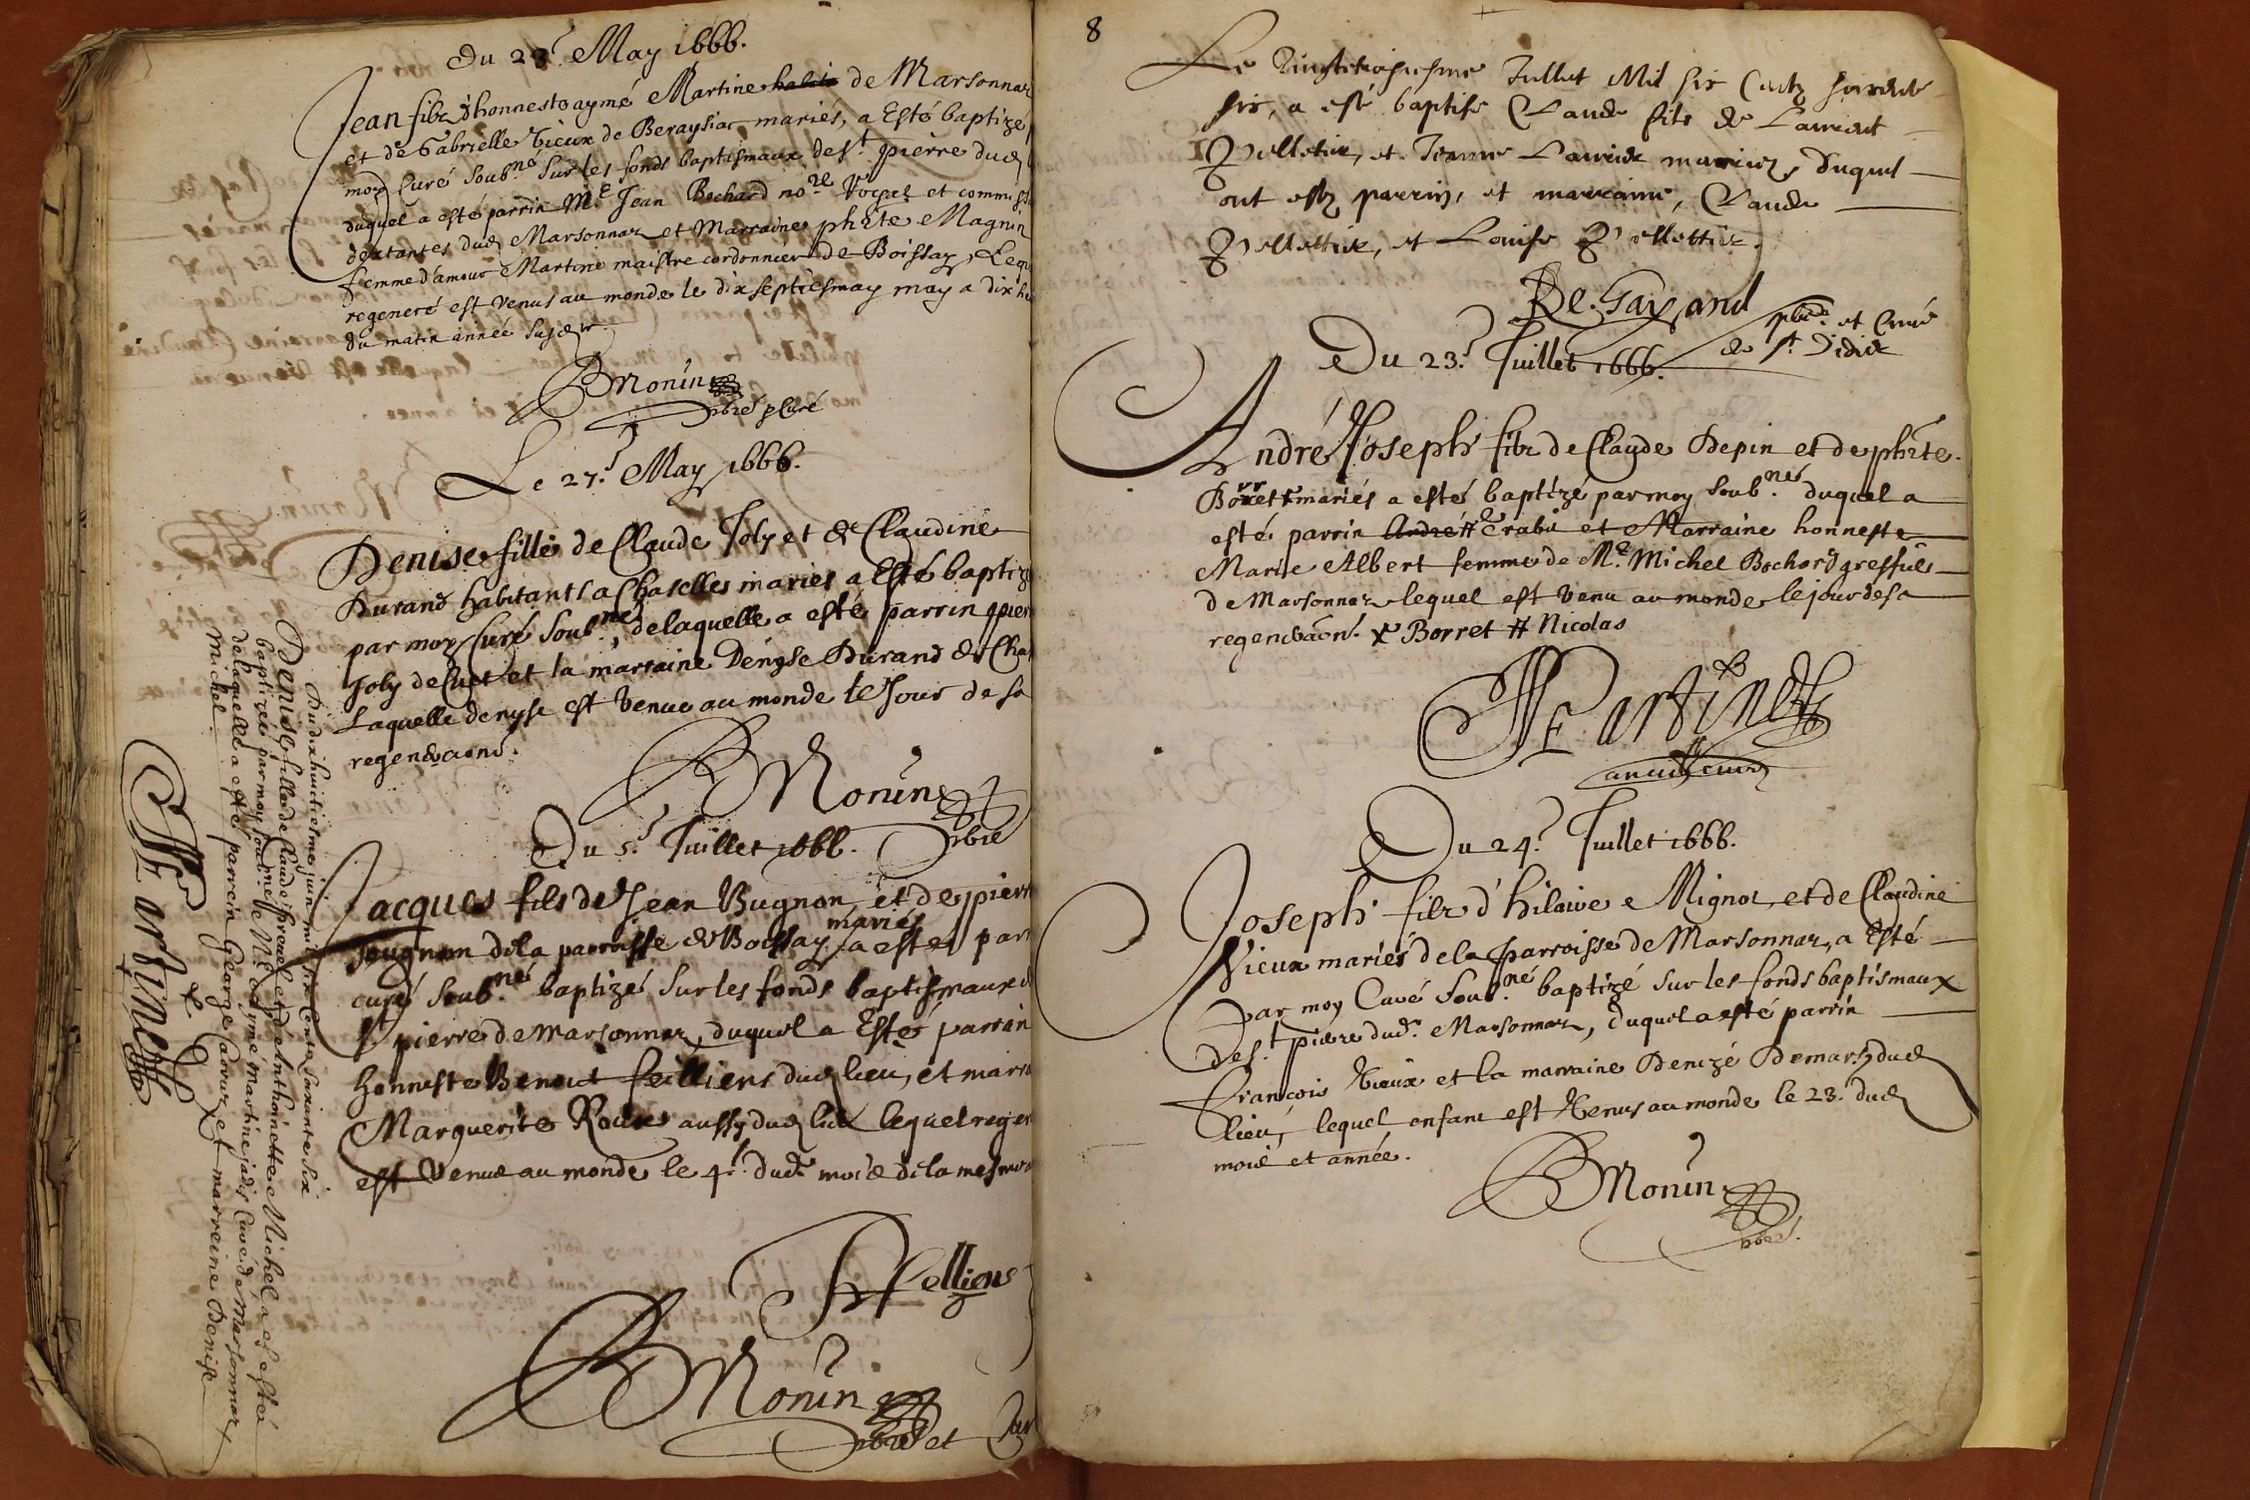 Du 23.e May 1666.
Jean filz d'honneste aymé Martine habit de Marsonnaz
et de Gabrielle Vieux de Beraysiac mariés, a Esté baptizé
moy Curé soub.né sur les fonds baptismaux de s.t pierre dud.
duquel a esté parrin M.e Jean Bochard no.re Royal et commiss
dextantes dud. Marsonnaz et Marraine ph.te Magnin
femme d'amour Martine maistre cordonnier de Boissay, Lequ
regeneré est venus au monde le dix septiesmay may a dix he
du matin année susd.
BMonin
pbre Curé
Le 27.e May 1666.
Denise fille de Claude Joly et de Claudine
Durand habitants a Chaselles mariés a Esté baptizé
par moy Curé soub.né, de laquelle a esté parrin pier
Joly de Cuet et la marraine Denyse Durand de Cha
Laquelle denyse est venue au monde le Jour de sa
regeneraōn.
BMonin
pbre
Du 5.e Juillet 1666.
Jacques fils de Jean Bugnon et de pierr
Jougnon de la parroisse de Boissay mariés a esté par
curé soub.né baptizé sur les fonds baptismaux d
s.t pierre de Marsonnaz, duquel a Esté parrin
honneste Benoit feilliens dud. lieu, et marr
Marguerite Roux aussy dud. lieu lequel regen
est venue au monde le 4.e dud. mois de la mesme
B felliens
BMonin
pbre et Cur
Du dix huictiesme juin mil six Cents soixante six
Denise fille de Claude prevel et de Anthoinette Michel a esté
baptizée par moy soub.né Me Aymé Martine jadis Curé de Marsonnaz
de laquelle a esté parrein George Carruz et marreine Denise
Michel
Martine
8
Le Vingttroisiesme Jullet Mil six Centz soixante
six, a esté baptise Claude fils de Laurent
Pelletier, et Jeanne Laurent mariez, duquel
ont estez parrin, et marraine, Claude
Pelletier, et Louise Pelletier.
De.Gayand
pbre et Curé
de s.t Didier
Du 23.e Juillet 1666.
André Joseph filz de Claude Depin et de ph.te
Borret + mariés a esté baptizé par moy soub.né duquel a
esté parrin André # Crabi et Marraine honneste
Marie Albert femme de M.e Michel Bochard greffier
de Marsonnaz lequel est venu au monde le jour de sa
regeneraōn. + Borret # Nicolas
Martine
ancien curé
Du 24.e Juillet 1666.
Joseph filz d'hilaire Mignot, et de Claudine
Vieux mariés de la parroisse de Marsonnaz, a Esté
par moy Curé soub.né baptizé sur les fonds baptismaux
de s.t pierre dud. Marsonnaz, duquel a esté parrin
françois Vieux et la marraine Denizé Demars dud.
lieu, lequel enfant est Venus au monde le 23. dud.
mois et année.
BMonin
pbre.